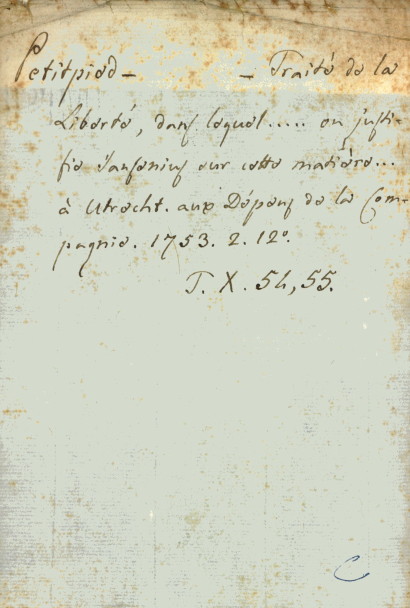 Petitpiéd - - Traité de la
Liberté, dans lequel..... on justi-
fie Jansenius sur cette matiére...
à Utrecht. aux Dépens de la Com-
pagnie. 1753. 2. 12°.
T. X. 54, 55.
C